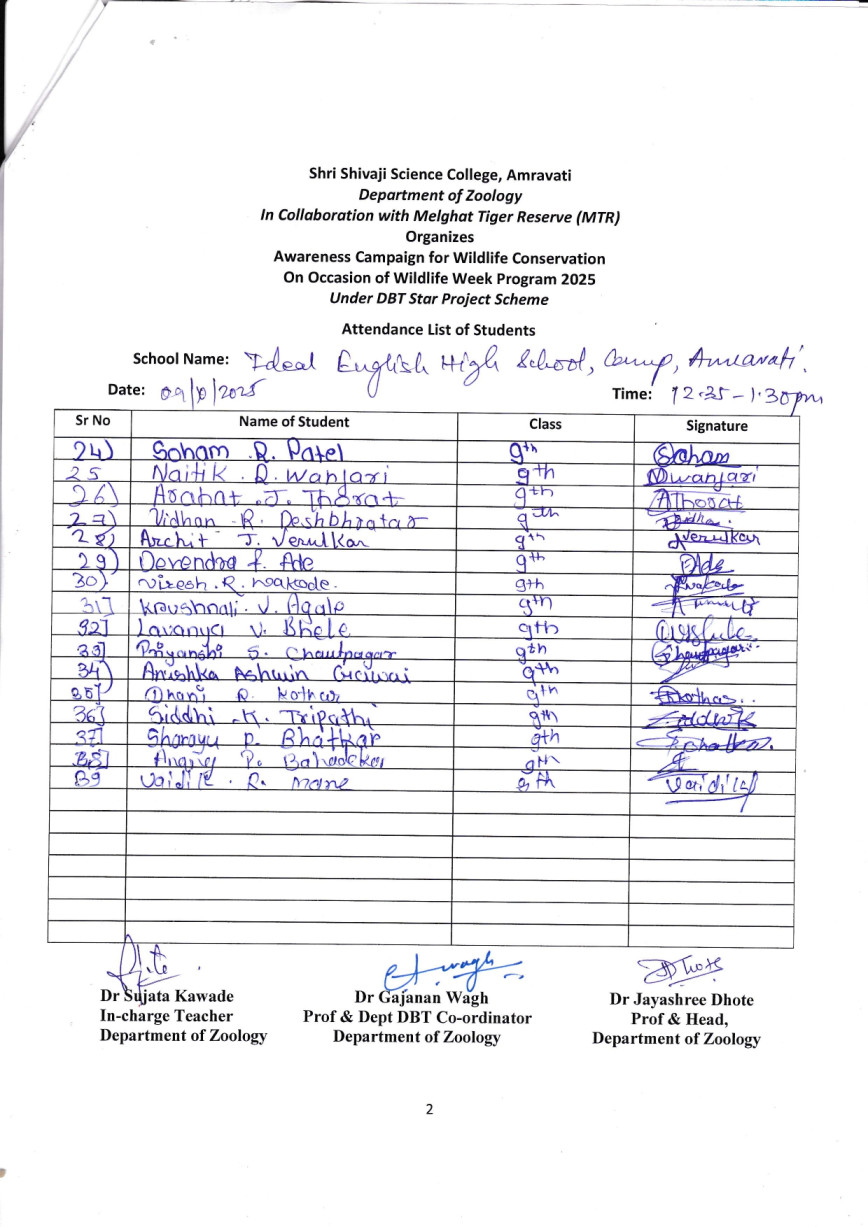 Shri Shivaji Science College, Amravati
Department of Zoology
In Collaboration with Melghat Tiger Reserve (MTR)
Organizes
Awareness Campaign for Wildlife Conservation
On Occasion of Wildlife Week Program 2025
Under DBT Star Project Scheme
Attendance List of Students
School Name: Ideal English High School, Camp, Amravati.
Date: 09/10/2025 Time: 12.35-1.30pm
Sr No Name of Student Class Signature
24) Soham .R. Patel 9th Soham
25 Naitik .D. Wanjari 9th Nwanjari
26) Arahat .J. Thorat 9th AThorat
27) Vidhan .R. Deshbhratar 9th
28) Archit J. Verulkar 9th Averulkar
29) Devendra f. Ade 9th DAde
30) Viresh .R. wakode. 9th
31] Krushnali. V. Agale 9th
32] Lavanya V. Bhele 9th
33] Priyanshi S. Chautpagar 9th
34) Anushka Ashwin 9th
35] Dhani R. Kothar 9th
36] Siddhi .K. Tripathi 9th
37] Sharayu P. Bhatkar 9th
38] P. 9th
39 Vaidik . R. Mane 9th Vaidik
Dr Sujata Kawade Dr Gajanan Wagh Dr Jayashree Dhote
In-charge Teacher Prof & Dept DBT Co-ordinator Prof & Head,
Department of Zoology Department of Zoology Department of Zoology
2